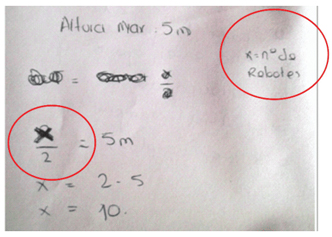 Altura Max: 5m
x = nº de
Rebotes
= x/2
x/2 = 5m
x = 2 · 5
x = 10.